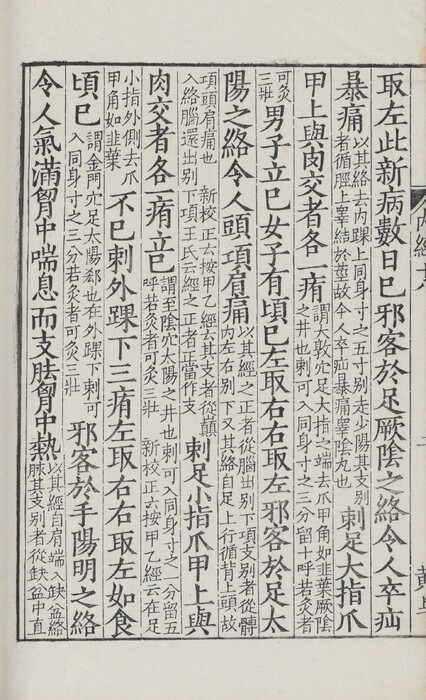 取左此新病數日已邪客於足厥陰之絡令人卒疝
暴痛
以其絡去内踝上同身寸之五寸别走少陽其支别
者循脛上睪結於莖故令人卒疝暴痛睪陰丸也
刺足大指爪
甲上與肉交者各一痏
謂大敦穴足大指之端去爪甲角如韭葉厥陰
之井也刺可入同身寸之三分留十呼若灸者
可灸
三壯
男子立已女子有頃已左取右右取左邪客於足太
陽之絡令人頭項肩痛
以其經之正者從腦出别下項支别者從髆
内左右别下又其絡自足上行循背上頭故
項頭肩痛也 新校正云按甲乙經云其支者從顛
入絡腦還出别下項王氏云經之正者正當作支
刺足小指爪甲上與
肉交者各一痏立已
謂至陰穴太陽之井也刺可入同身寸之一分留五
呼若灸者可灸三壯 新校正云按甲乙經云在足
小指外側去爪
甲角如韭葉
不已刺外踝下三痏左取右右取左如食
頃已
謂金門穴足太陽郄也在外踝下刺可
入同身寸之三分若灸者可灸三壯
邪客於手陽明之絡
令人氣滿胷中喘息而支胠胷中熱
以其經自肩端入缺盆絡
肺其支别者從缺盆中直